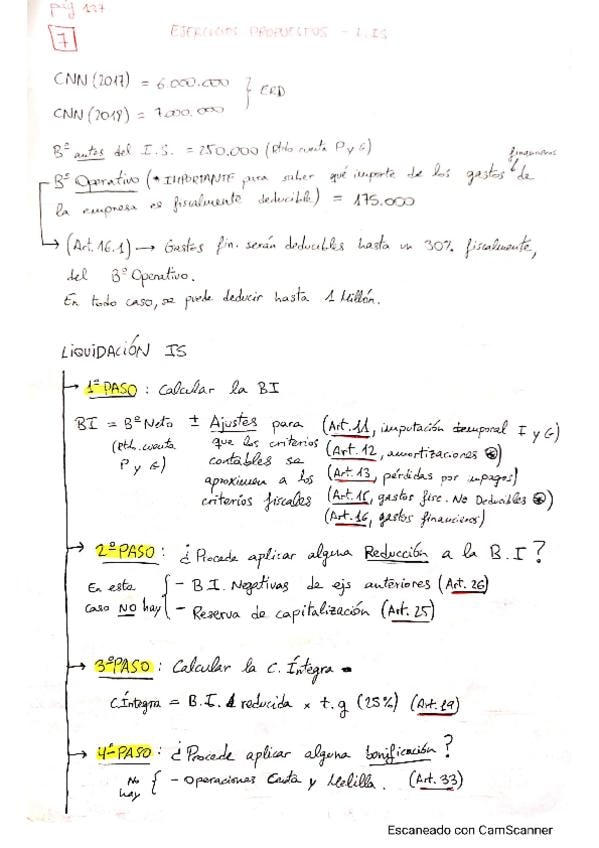 pág 127
7
EJERCICIOS PROPUESTOS - L.IS
CNN (2017) = 6.000.000
CNN (2018) = 7.000.000
} ERD
Bº antes del I.S. = 250.000 (Rtdo. cuenta P y G)
financieros
Bº Operativo (* IMPORTANTE para saber qué importe de los gastos de
la empresa es fiscalmente deducible) = 175.000
(Art. 16.1) → Gastos fin. serán deducibles hasta un 30% fiscalmente,
del Bº Operativo.
En todo caso, se puede deducir hasta 1 Millón.
LIQUIDACIÓN IS
→ 1º PASO : Calcular la BI
BI = Bº Neto ± Ajustes para (Art. 11, imputación temporal I y G)
(Rtdo. cuenta que los criterios (Art. 12, amortizaciones)
P y G) contables se (Art. 13, pérdidas por impagos)
aproximen a los (Art. 15, gastos fisc. No Deducibles)
criterios fiscales (Art. 16, gastos financieros)
→ 2º PASO : ¿Procede aplicar alguna Reducción a la B.I?
En este { - B.I. Negativas de ejs anteriores (Art. 26)
caso NO hay - Reserva de capitalización (Art. 25)
→ 3º PASO : Calcular la C. Íntegra
C.Íntegra = B.I. reducida x t.g (25%) (Art. 29)
→ 4º PASO : ¿Procede aplicar alguna bonificación?
No hay { - Operaciones Ceuta y Melilla. (Art. 33)
Escaneado con CamScanner